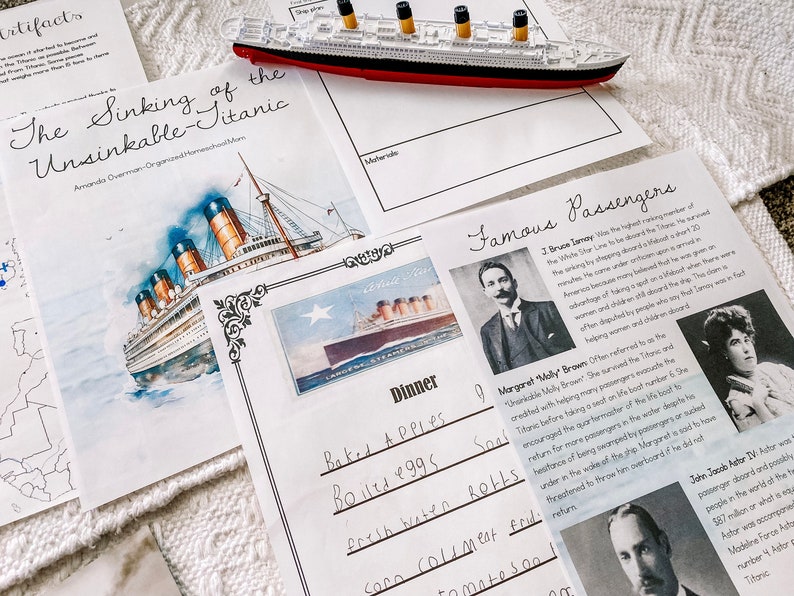 Artifacts
the ocean it started to become and
the Titanic as possible. Between
ed from Titanic. Some pieces
hat weighs more than 15 tons to items
The Sinking of the
Unsinkable-Titanic
Amanda Overman-Organized.Homeschool.Mom
Ship plan:
Materials:
White Star
LARGEST STEAMERS IN THE
Dinner
Baked APPles
Boiled eggs
fresh water Rolls
corn colsmeat
Famous Passengers
J. Bruce Ismay: Was the highest ranking member of
the White Star Line to be aboard the Titanic. He survived
the sinking by stepping aboard a lifeboat a short 20
minutes. He came under criticism upon is arrival in
America because many believed that he was given an
advantage of taking a spot on a lifeboat when there were
women and children still aboard the ship. This claim is
often disputed by people who say that Ismay was in fact
helping women and children aboard.
Margaret "Molly" Brown: Often referred to as the
"Unsinkable Molly Brown". She survived the Titanic and
credited with helping many passengers evacuate the
Titanic before taking a seat on life boat number 6. She
encouraged the quartermaster of the life boat to
return for more passengers in the water despite his
hesitance of being swamped by passengers or sucked
under in the wake of the ship. Margaret is said to have
threatened to throw him overboard if he did not
return.
John Jacob Astor IV: Astor was
passenger aboard and possibly
people in the world at the
$87 million or what is equi
Astor was accompanied
Madeline Force Astor
number 4. Astor
Titanic.